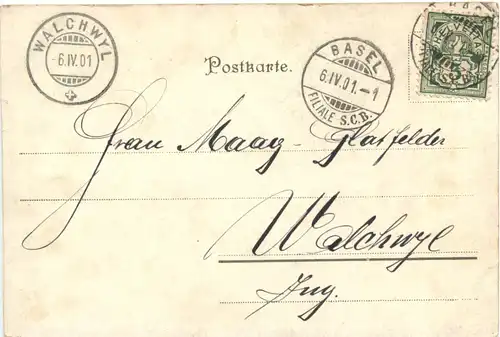 WALCHWYL
-6.IV.01
BASEL
6.IV.01.-1
FILIALE S.C.B.
Postkarte.
Frau Maag-Glatfelder
Walchwyl
Zug.